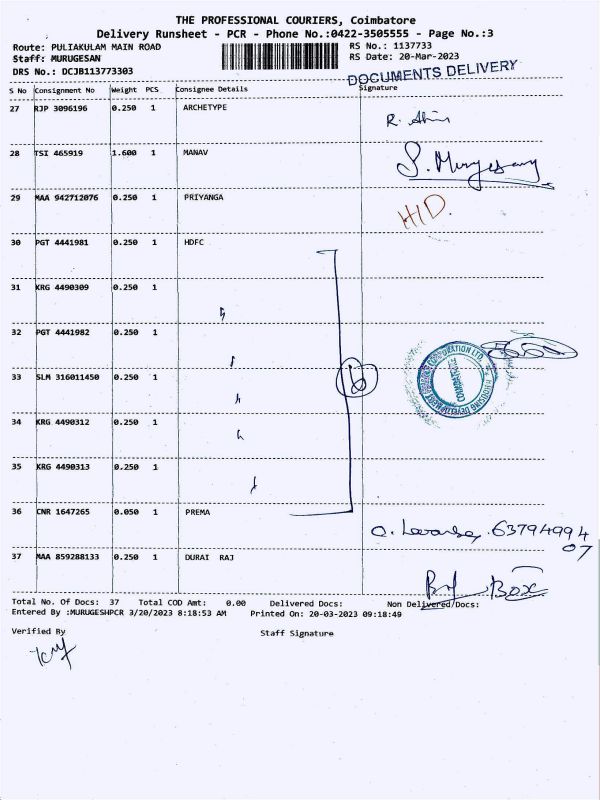 THE PROFESSIONAL COURIERS, Coimbatore
Delivery Runsheet - PCR - Phone No.:0422-3505555 - Page No.:3
Route: PULIAKULAM MAIN ROAD RS No.: 1137733
Staff: MURUGESAN RS Date: 20-Mar-2023
DRS No.: DCJB113773303 DOCUMENTS DELIVERY
S No Consignment No Weight PCS Consignee Details Signature
27 RJP 3096196 0.250 1 ARCHETYPE
28 TSI 465919 1.600 1 MANAV S. Murugesan
29 MAA 942712076 0.250 1 PRIYANGA H/D.
30 PGT 4441981 0.250 1 HDFC
31 KRG 4490309 0.250 1
32 PGT 4441982 0.250 1
33 SLM 316011450 0.250 1 6
HOUSING DEVELOPMENT FINANCE CORPORATION LTD.
COIMBATORE
34 KRG 4490312 0.250 1
35 KRG 4490313 0.250 1
36 CNR 1647265 0.050 1 PREMA 63794994
07
37 MAA 859288133 0.250 1 DURAI RAJ Box
Total No. Of Docs: 37 Total COD Amt: 0.00 Delivered Docs: Non Delivered/Docs:
Entered By :MURUGESHPCR 3/20/2023 8:18:53 AM Printed On: 20-03-2023 09:18:49
Verified By Staff Signature